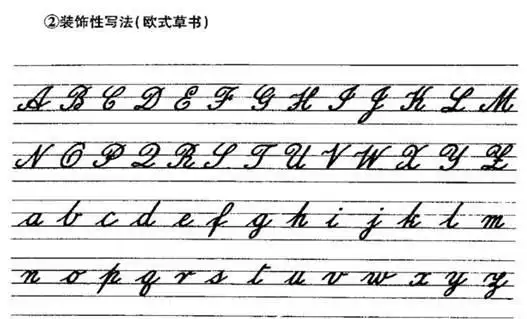 ②装饰性写法(欧式草书)
A B C D E F G H I J K L M
N O P Q R S T U V W X Y Z
a b c d e f g h i j k l m
n o p q r s t u v w x y z